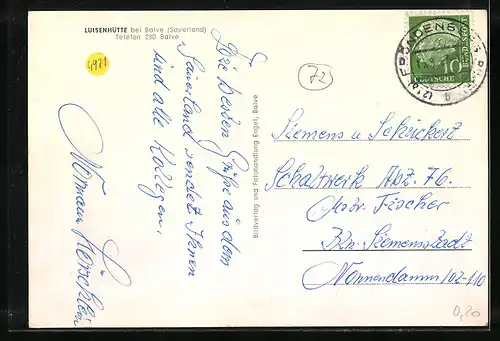 LUISENHÜTTE bei Balve (Sauerland)
Telefon 280 Balve
4971
72
Die besten Grüße aus dem
Sauerland sendet Ihnen
und alle Kollegen,
Bildverlag und Fotohandlung Engel, Balve
FRÖNDENBERG
10
DEUTSCHE
BUNDESPOST
Siemens u Schuckert
Schaltwerk Abz. 76.
Abtr. Fischer
Bln. Siemensstadt
Nonnendamm 102-110
0,20